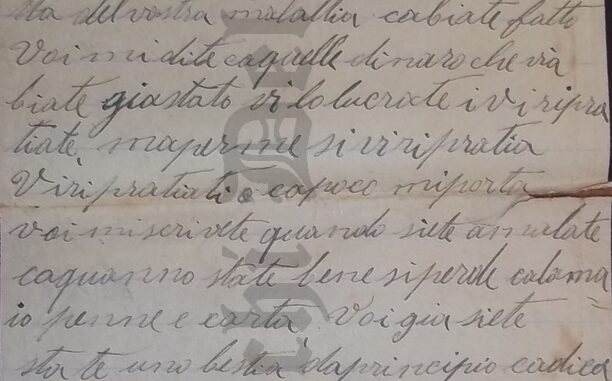 sta del vostra malattia cabiate fatto
Voi mi dite caquelle dinaro che via
biate giastato vi lo lucriate i vi ripra
tiate, maperme si vi ripratia
Vi ripratiati o capoco miporta
voi miscrivete quando siete amalate
caquanno state bene siperde calama
io penne e carta Voi gia siete
state uno bestia daprincipio cadica